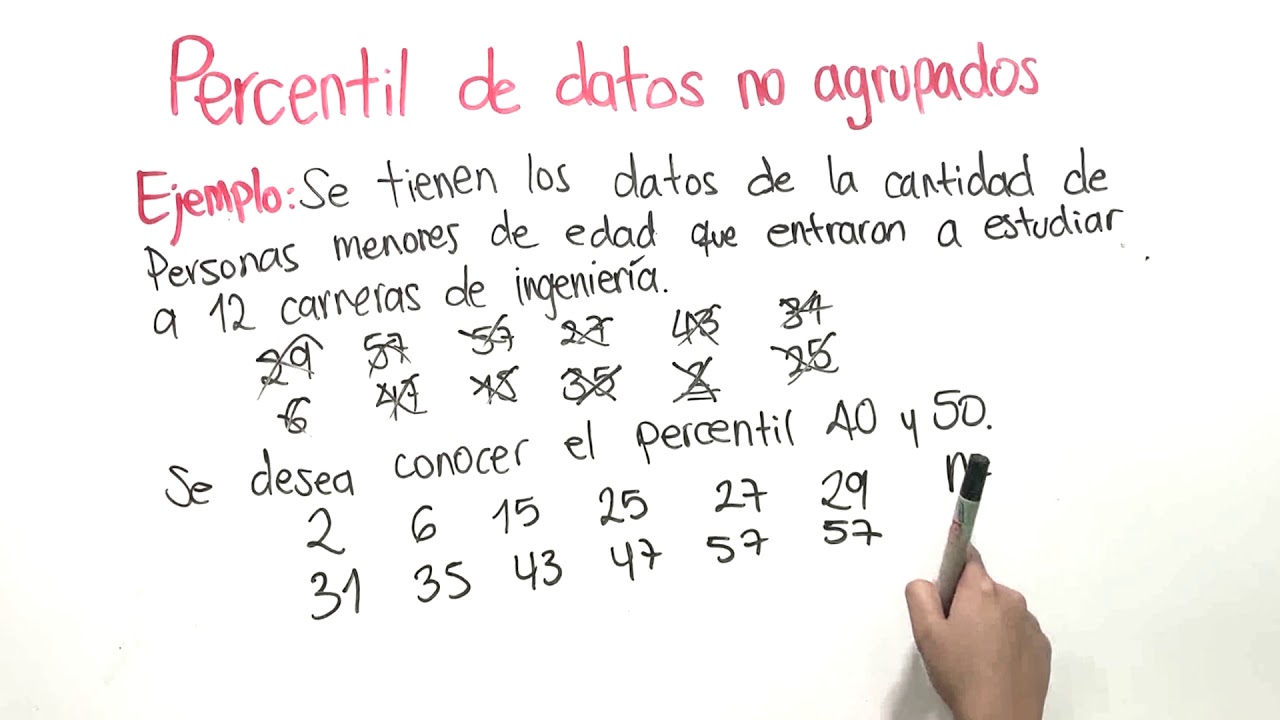 Percentil de datos no agrupados
Ejemplo: Se tienen los datos de la cantidad de
Personas menores de edad que entraron a estudiar
a 12 carreras de ingeniería.
29 57 57 27 43 31
6 47 15 35 2 25
Se desea conocer el percentil 40 y 50.
2 6 15 25 27 29 n
31 35 43 47 57 57